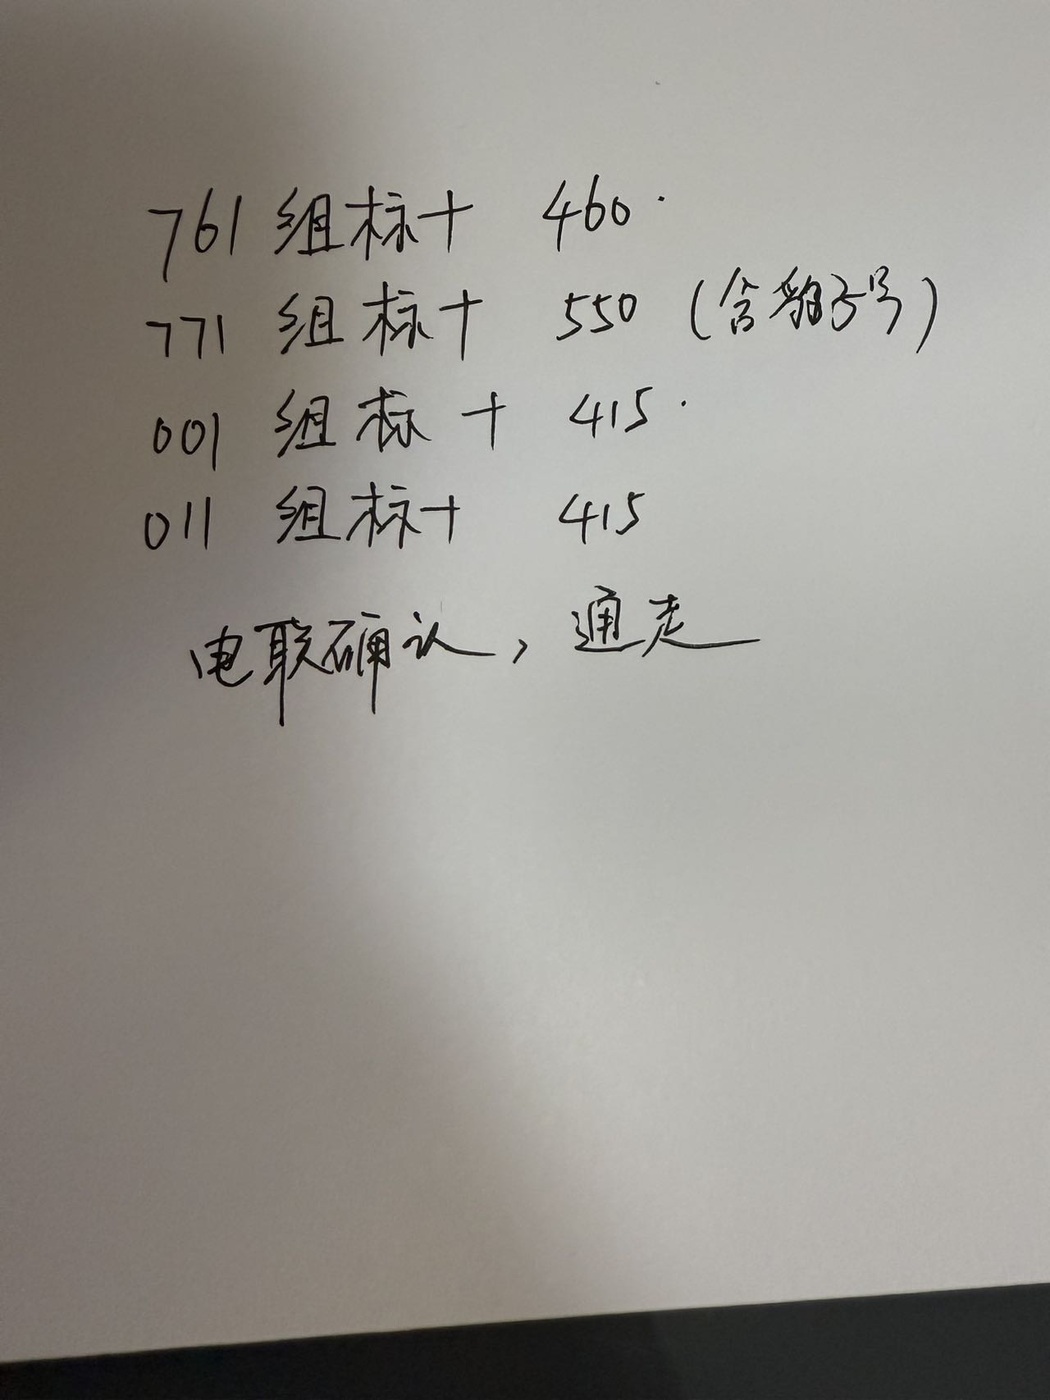 761 组标十 460.
771 组标十 550 (含豹子号)
001 组标十 415.
011 组标十 415
电联确认, 通走